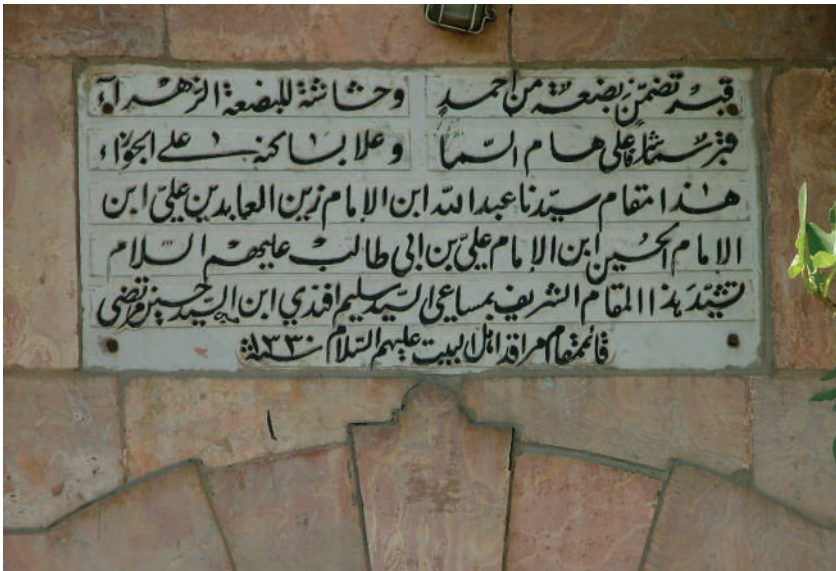 قبر تضمن بضعة من احمد وحشاشة للبضعة الزهراء
قبر سما شرفا على هام السما وعلا بساكنه على الجوزاء
هذا مقام سيدنا عبد الله ابن الامام زين العابدين علي ابن
الامام الحسين ابن الامام علي بن ابي طالب عليهم السلام
تشيد هذا المقام الشريف بمساعي السيد سليم افندي ابن السيد حسين مرتضى
قائمقام مراقد اهل البيت عليهم السلام سنة ١٣٣٠